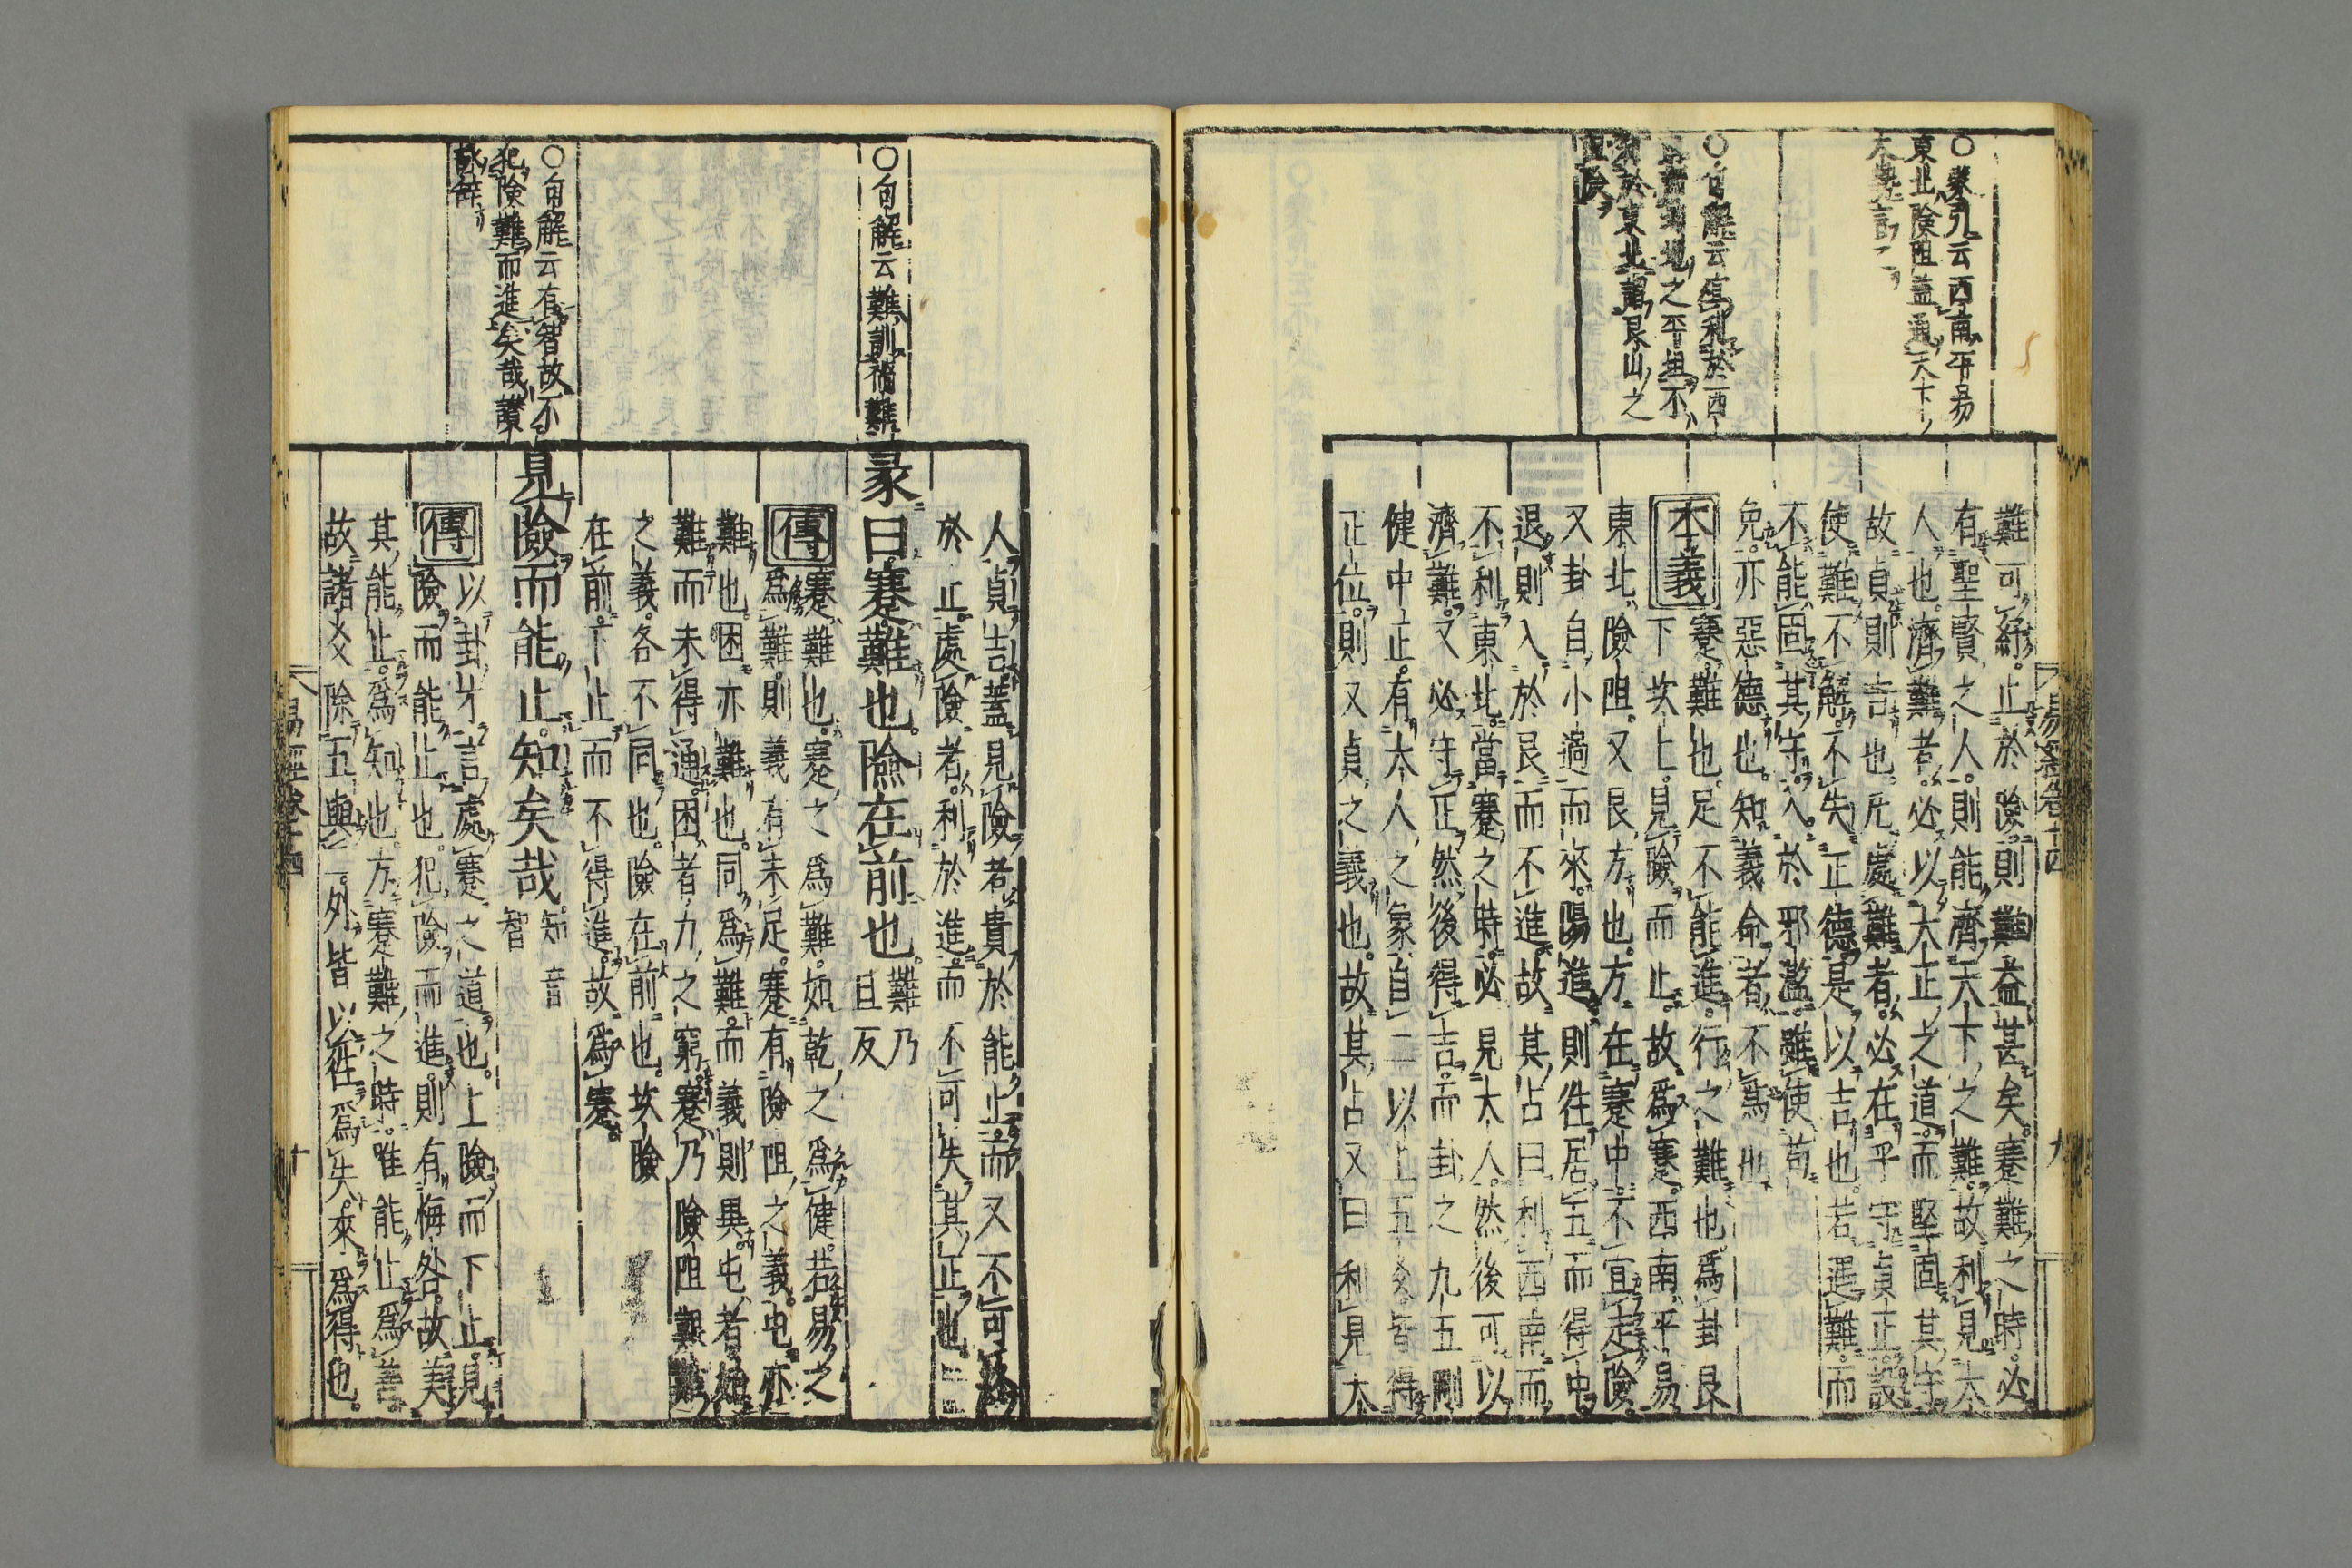 ○蒙引云西南平易
東北險阻蓋通天下ノ
大勢言フ
○句解云寘利於西
坤之平坦不
於東北艮山之
險
難可紓止於險則難益甚矣蹇難之時必
有聖賢之人則能濟天下之難故利見大
人也濟難者必以大正之道而堅固其守
故貞則吉也凡處難者必在乎守貞正設
使難不解不失正德是以吉也若遇難而
不能固其守入於邪濫雖使苟
免亦惡德也知義命者不爲也
本義蹇難也足不能進行之難也爲卦艮
下坎上見險而止故爲蹇西南平易
東北險阻又艮方也方在蹇中不宜走險
又卦自小過而來陽進則往居五而得中
退則入於艮而不進故其占曰利西南而
不利東北當蹇之時必見大人然後可以
濟難又必守正然後得吉而卦之九五剛
健中正有大人之象自二以上五爻皆得
正位則又貞之義也故其占又曰利見大
易經卷十四
九
人貞吉蓋見險者貴於能止而又不可終
於止處險者利於進而不可失其正也
○句解云難訓禍難
彖曰蹇難也險在前也難乃
且反
傳蹇難也蹇之爲難如乾之爲健若易之
爲難則義有未足蹇有險阻之義屯亦
難也困亦難也同爲難而義則異屯者始
難而未得通困者力之窮蹇乃險阻艱難
之義各不同也險在前也坎險
在前下止而不得進故爲蹇
○句解云有智故不
犯險難而進矣哉讚
見險而能止知矣哉知音
智
傳以卦才言處蹇之道也上險而下止見
險而能止也犯險而進則有悔咎故美
其能止爲知也方蹇難之時唯能止爲善
故諸爻除五與二外皆以往爲失來爲得也
易經卷十四
十